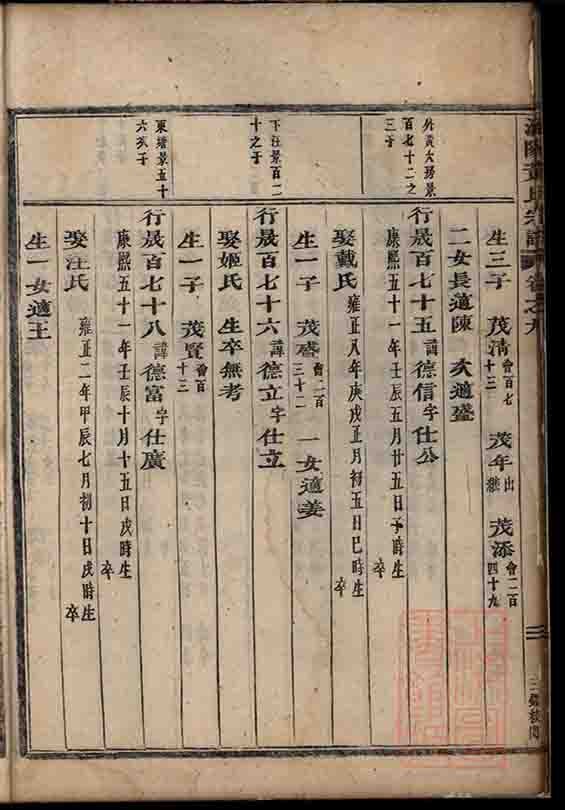 宗譜 卷之九
生三子 茂清 會百七十三 茂年 出繼 茂添 會二百四十九
二女長適陳 次適盛
外黃大塝景百七十二之三子
行晟百七十五 諱 德信 字 仕公
康熙五十一年壬辰五月廿五日子時生 卒
娶戴氏 雍正八年庚戌正月初五日巳時生 卒
生一子 茂盛 會二百三十二 一女適姜
下汪景百二十之子
行晟百七十六 諱 德立 字 仕立
娶姬氏 生卒無考
生一子 茂賢 會百十三
東塘景五十六次子
行晟百七十八 諱 德富 字 仕廣
康熙五十一年壬辰十月十五日戌時生 卒
娶汪氏 雍正二年甲辰七月初十日戌時生 卒
生一女適王